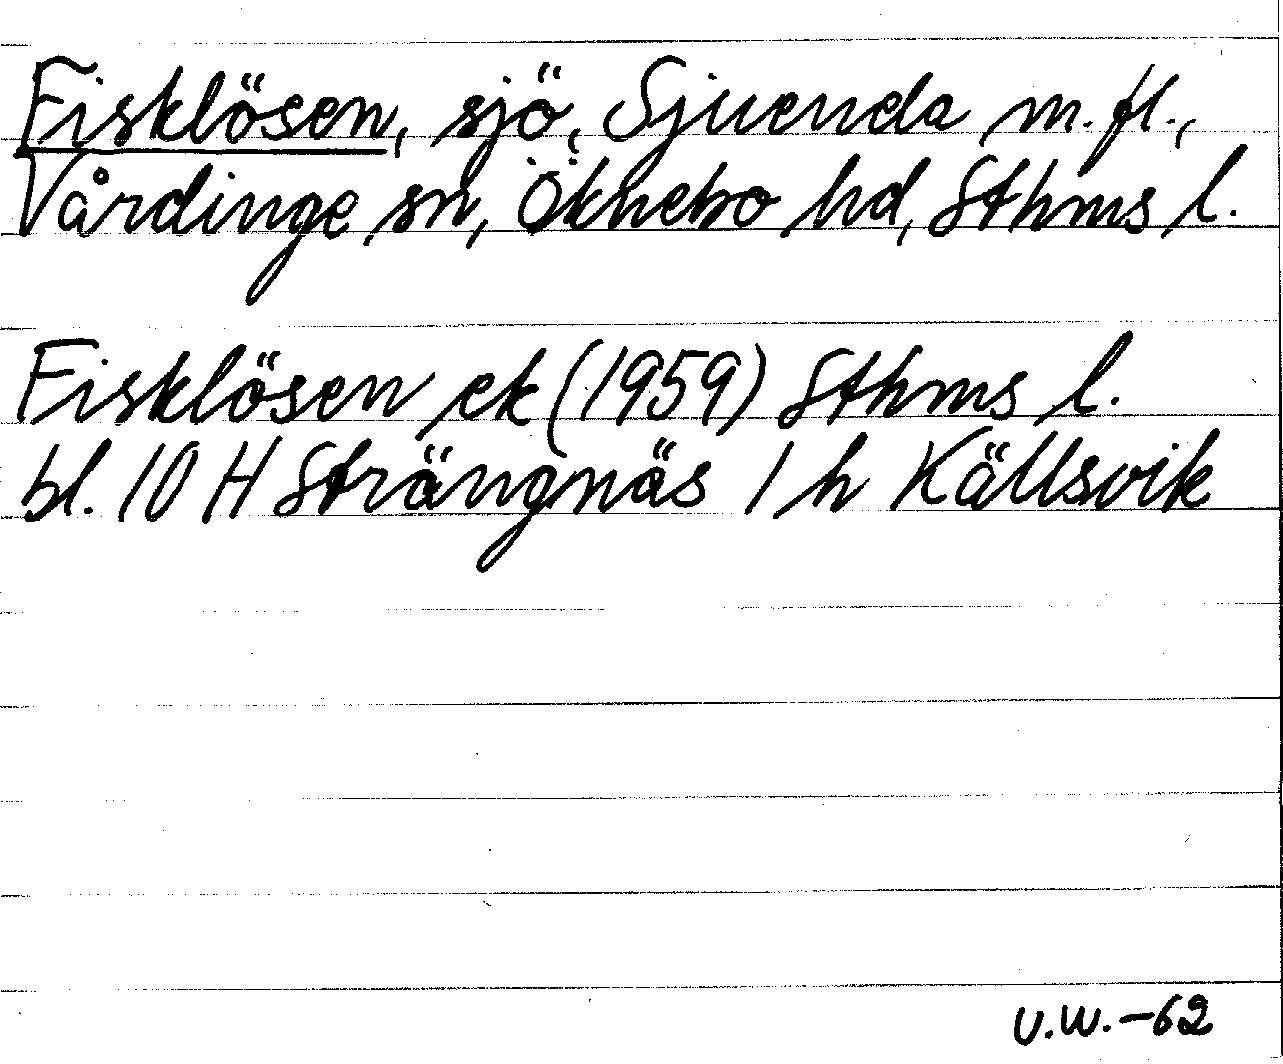 Fisklösen, sjö, Sjuenda m. fl.,
Vårdinge sn, Öknebo hd, Sthms l.
Fisklösen ek (1959) Sthms l.
bl. 10 H Strängnäs 1 h Källsvik
U.W.-62